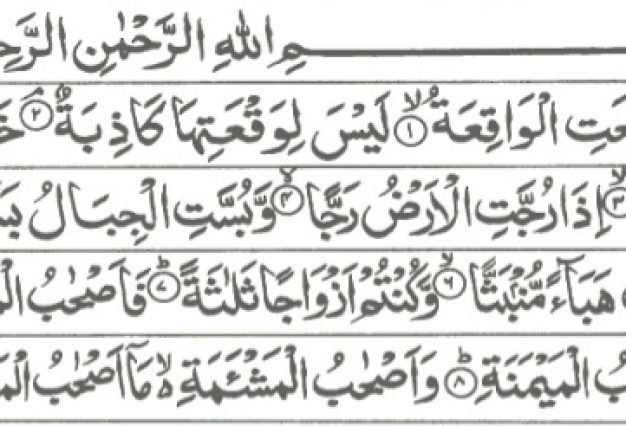 مِ اللهِ الرَّحْمٰنِ الرَّحِ
عَتِ الْوَاقِعَةُ ۙ﴿۱﴾ لَيْسَ لِوَقْعَتِهَا كَاذِبَةٌ ۘ﴿۲﴾ خَ
ۙ﴿۳﴾ اِذَا رُجَّتِ الْاَرْضُ رَجًّا ۙ﴿۴﴾ وَّبُسَّتِ الْجِبَالُ بَسّ
هَبَآءً مُّنْۢبَثًّا ۙ﴿۶﴾ وَّكُنْتُمْ اَزْوَاجًا ثَلٰثَةً ؕ﴿۷﴾ فَاَصْحٰبُ الْمَ
بُ الْمَيْمَنَةِ ؕ﴿۸﴾ وَاَصْحٰبُ الْمَشْـَٔمَةِ ۙ۬ مَاۤ اَصْحٰبُ الْمَ